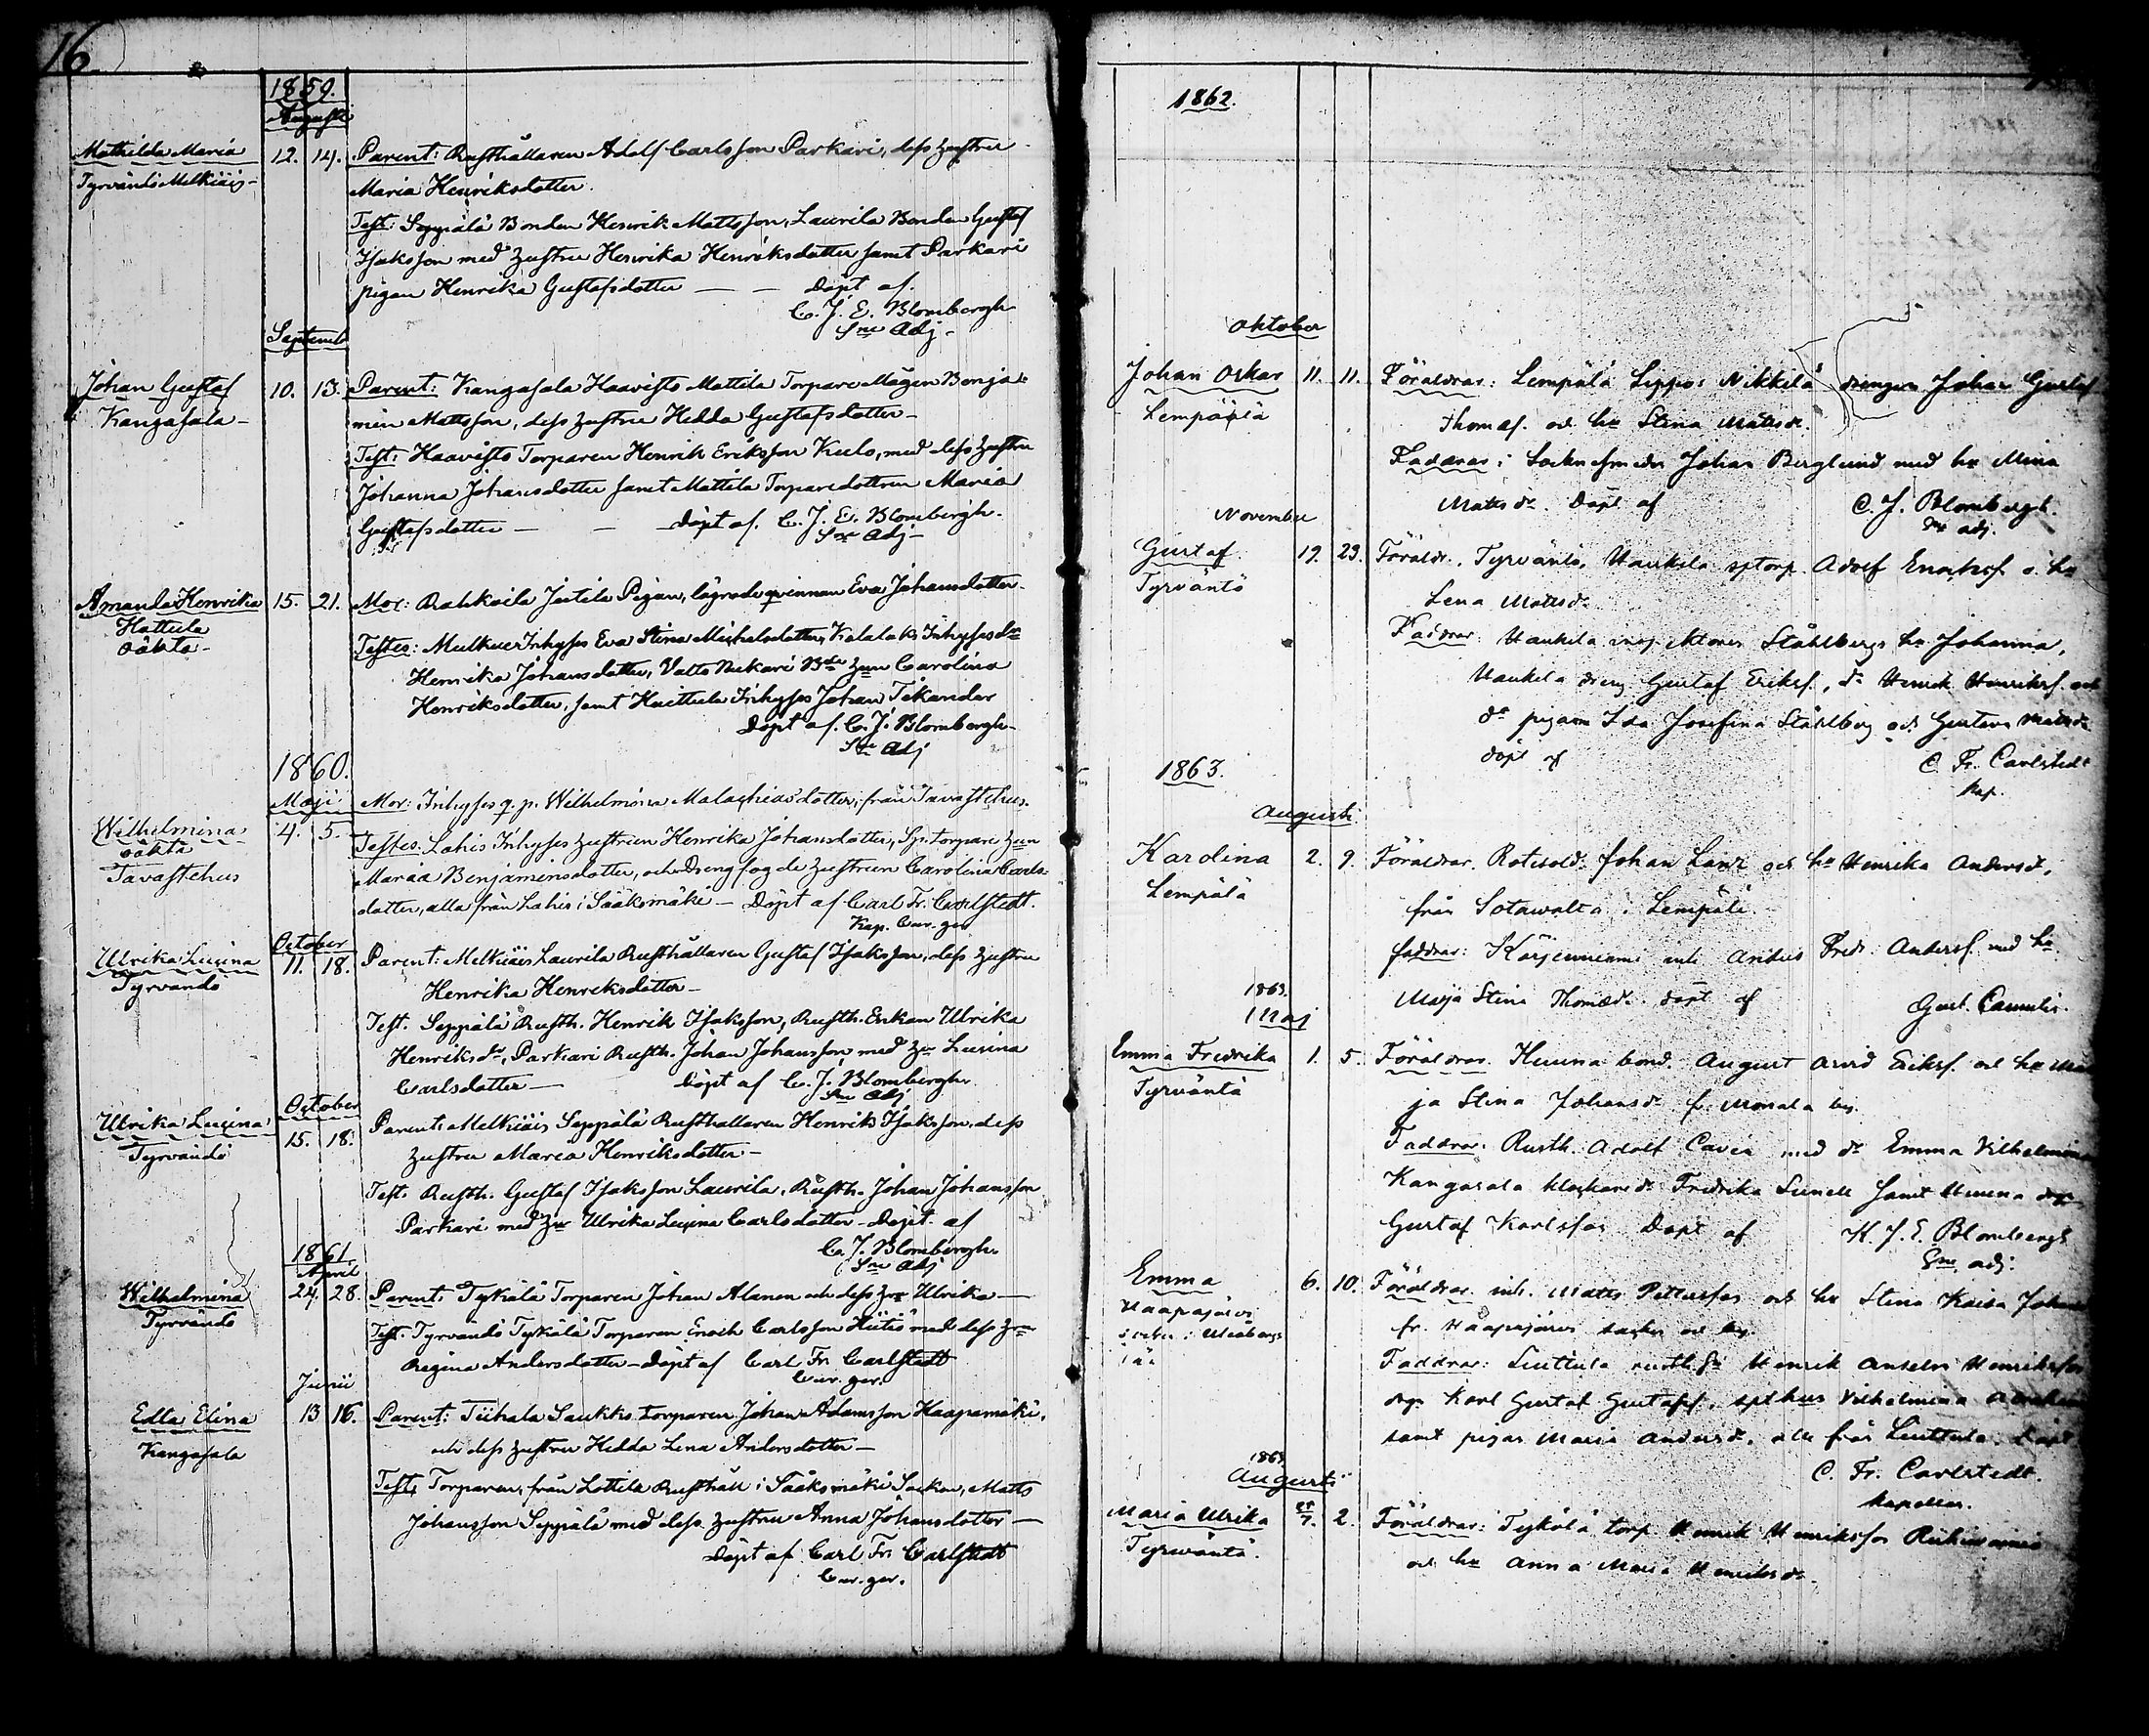 16
1859.
Augusti
Mathilda Maria 12. 14. Parent: Rusthållaren Adolf Carlsson Parkari, dess hustru
Tyrvändö Melkiäis Maria Henriksdotter.
Test: Seppälä Bonden Henrik Mattsson, Laurila Bonden Gustaf
Isaksson med hustru Henrika Henriksdotter samt Parkari
pigan Henrika Gustafsdotter — — Döpt af.
C. J. E. Blombergh
Sne Adj.
Septemb
Johan Gustaf 10. 13. Parent: Kangasala Haavisto Mattila Torpare Mågen Benja-
Kangasala min Mattsson, dess hustru Hedda Gustafsdotter
Test: Haavisto Torparen Henrik Eriksson Kulo, med dess hustru
Johanna Johansdotter samt Mattila Torparedottren Maria
Gustafsdotter — — Döpt af. C. J. E. Blombergh.
Sne Adj
Amanda Henrika 15. 21. Mor: Rahkoila Jutila Pigan, lägrade qvinnan Eva Johansdotter
Hattula
oäkta Testes: Inhyses Eva Stina Michelsdotter, Inhyses
Henrika Johansdotter, Carolina
Henriksdotter, samt Huittula Inhyses Johan Tikander
Döpt af. C. J. Blombergh
Sne Adj
1860.
Maji Mor: Inhyses q. p. Wilhelmina Malachiasdotter, från Tavastehus.
Wilhelmina 4. 5. Testes. Lahis Inhyses hustrun Henrika Johansdotter, Sp. torpare
oäkta Maria Benjaminsdotter, och Drengfogde hustrun Carolina Carls-
Tavastehus dotter, alla från Lahis i Sääksmäki — Döpt af Carl Fr. Carlstedt.
Kap. Cur. ger
October
Ulrika Lucina 11. 18. Parent: Melkiäis Laurila Rusthållaren Gustaf Isaksson, dess hustru
Tyrvändö Henrika Henriksdotter
Test. Seppälä Rusth. Henrik Isaksson, Rusth. Enkan Ulrika
Henriksdr, Parkari Rusth. Johan Johansson med Lucina
Carlsdotter — Döpt af C. J. Blombergh
Sne Adj
October
Ulrika Lucina 15. 18. Parent: Melkiäis Seppälä Rusthållaren Henrik Isaksson, dess
Tyrvändö hustru Maria Henriksdotter
Test. Rusth. Gustaf Isaksson Laurila, Rusth. Johan Johansson
Parkari med Ulrika Lucina Carlsdotter — Döpt af
C. J. Blombergh
Sne Adj
1861.
April
Wilhelmina 24. 28. Parent: Tykälä Torparen Johan Alanen och dess Ulrika
Tyrvändö Test. Tyrvändö Tykälä Torparen Enoch Carlsson med dess
Regina Andersdotter — Döpt af Carl Fr. Carlstedt
Cur. ger.
Junii
Edla Elina 13 16. Parent: Tiihala Saukko torparen Johan Adamsson Haapamäki,
Kangasala och dess hustru Hedda Lena Andersdotter
Test: Torparen från Lottila Rusthåll i Sääksmäki Socken, Matts
Johansson Seppälä med dess hustru Anna Johansdotter
Döpt af Carl Fr. Carlstedt
Cur. ger.
1862.
Oktober
Johan Oskar 11. 11. Föräldrar: Lempälä Sippo: Nikkilä drengen Johan Gustaf
Lempäälä Thomas. och hu Stina Mattsdr.
Faddrar: Sockensmeden Johan Berglund med hu Mina
Mattsdr. Döpt af C. J. Blombergh.
Sne adj.
November
Gustaf 19. 23. Föräldr. Tyrväntö, Uskila sptorp. Adolf o. hu
Tyrväntö Lena Mattsdr.
Faddrar: Ståhlbergs hu Johanna,
dreng Gustaf Eriksf., dr Henrik Henriksf. och
dr pigorna Ida Josefina Ståhlberg och Gustava
döpt af C. Fr. Carlstedt
Kap.
1863.
Augusti
Karolina 2. 9. Föräldrar. Rotesold. Johan och hu Henrika Andersdr,
Lempälä från Sotawalta i Lempälä.
faddrar: Fredr. Andersf. med hu
Maja Stina Thomasdr. döpt af Gust.
1863.
Maj
Emma Fredrika 1. 5. Föräldrar. Huuna bond. August Arvid Eriksf. och hu Ma
Tyrväntö ja Stina Johansdr fr. by.
Faddrar. Rusth. Adolf med dr Emma Vilhelmina
Kangasala Fredrika samt Huuna
Gustaf Karlsson. Döpt af K. J. E. Blombergh
Sne adj.
Emma 6. 10. Föräldrar. inh. Matts Pettersson och hu Stina Kaisa Johans
Haapajärvi fr. Haapajärvi socken och by.
Faddrar: Liuttula Henrik Anselm Henriksson
Karl Gustaf Gustafsf, Vilhelmina
samt pigan Maria Andersdr. alla från Liuttula. Döpt
C. Fr. Carlstedt.
Kapellan.
1863.
Augusti
Maria Ulrika 2. Föräldrar: Tykölä torp. Henrik Henriksson
Tyrwäntö. och hu Anna Maria Henriksdr.